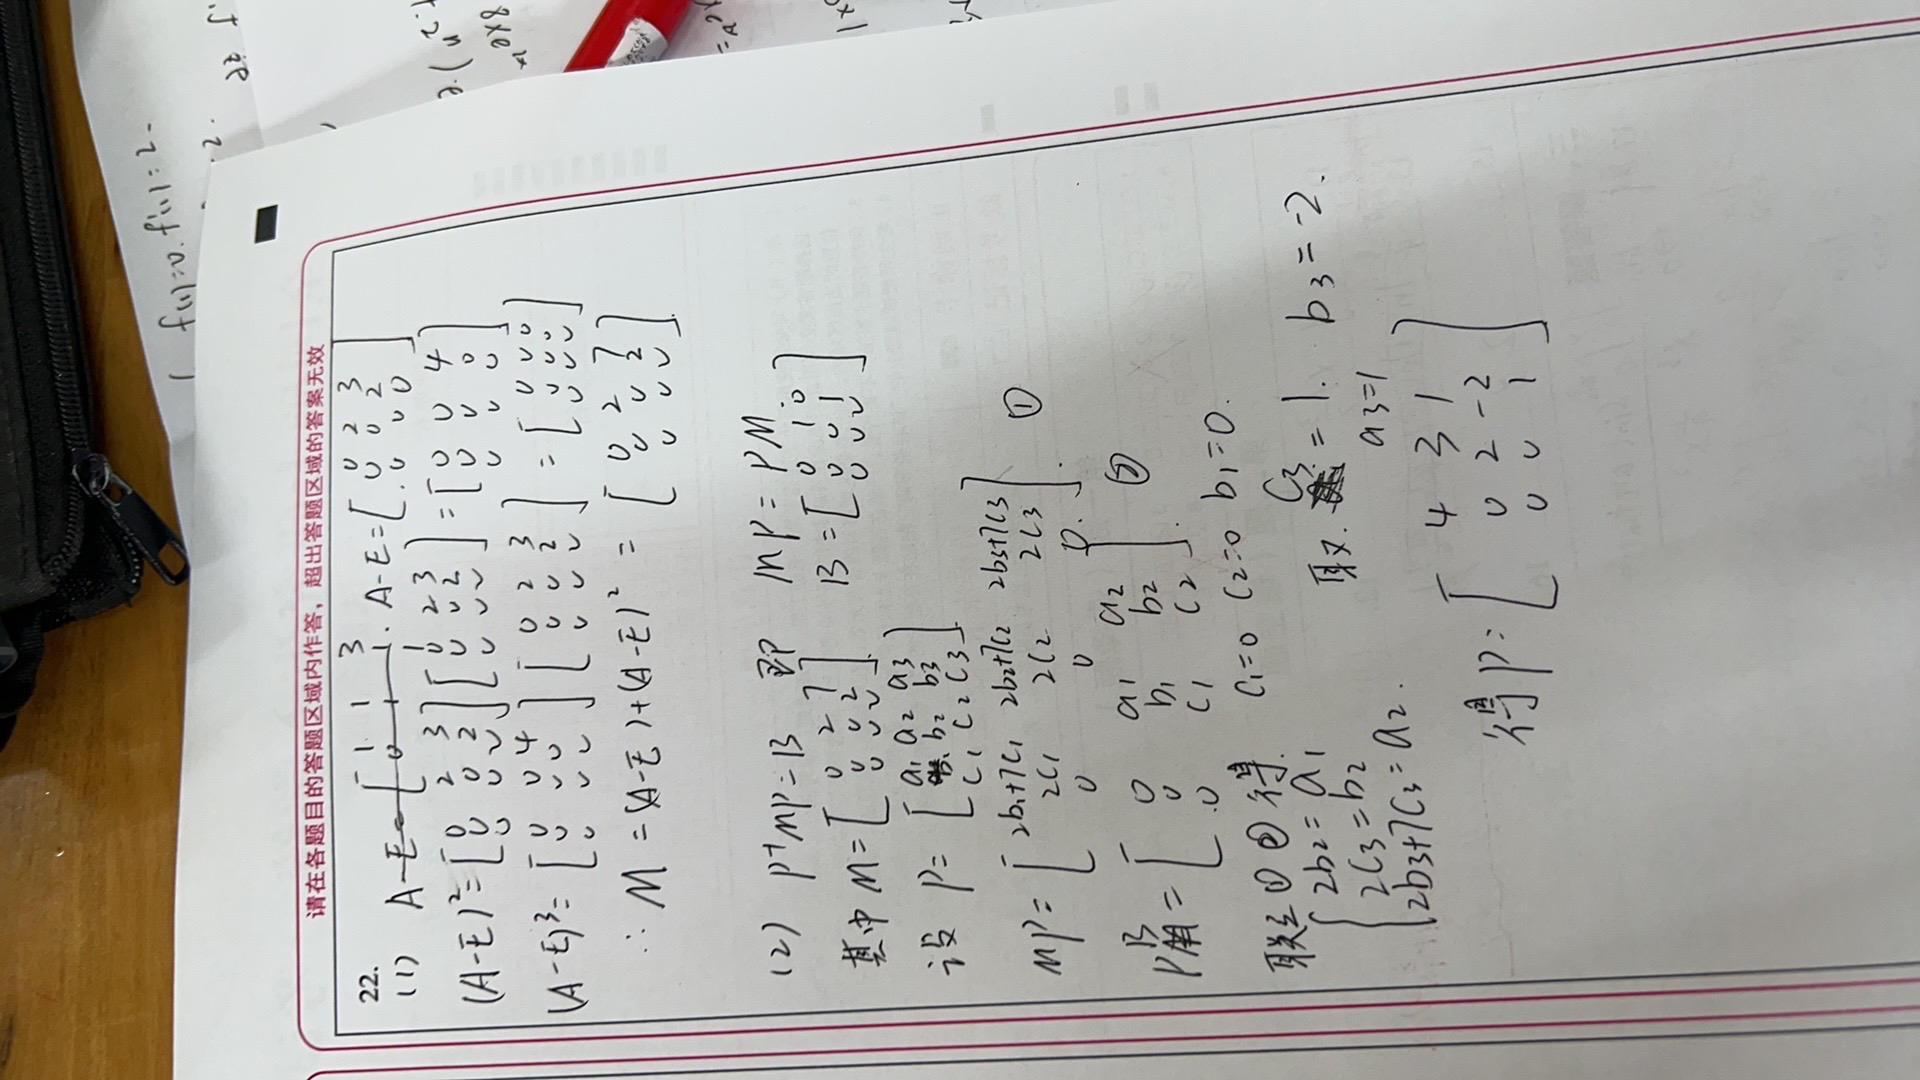 请在各题目的答题区域内作答，超出答题区域的答案无效
22.
(1) A-E=[ 1 1 3 0 1 . A-E=[ 0 2 3
0 0 2
0 0 0 ]
(A-E)²=[ 0 2 3 ][ 0 2 3 ]=[ 0 0 4 ]
0 0 2 0 0 2 0 0 0
0 0 0 0 0 0 0 0 0
(A-E)³=[ 0 0 4 ][ 0 2 3 ]=[ 0 0 0 ]
0 0 0 0 0 2 0 0 0
0 0 0 0 0 0 0 0 0
∴ M=(A-E)+(A-E)² = [ 0 2 7 ]
0 0 2
0 0 0
(2) P⁻¹MP=B 即 MP=PM
其中 M=[ 0 2 7 ] B=[ 0 1 0 ]
0 0 2 0 0 1
0 0 0 0 0 0
设 P=[ a1 a2 a3 ]
b1 b2 b3
c1 c2 c3
MP=[ 2b1+7c1 2b2+7c2 2b3+7c3 ] ①
2c1 2c2 2c3
0 0 0
PB=[ 0 a1 a2 ] ②
0 b1 b2
0 c1 c2
联立①②得. c1=0 c2=0 b1=0.
2b2=a1
2c3=b2
2b3+7c3=a2.
取. c3=1. b3=-2.
a3=1
得P=[ 4 3 1 ]
0 2 -2
0 0 1
f(1)=0. f'(1)=2.